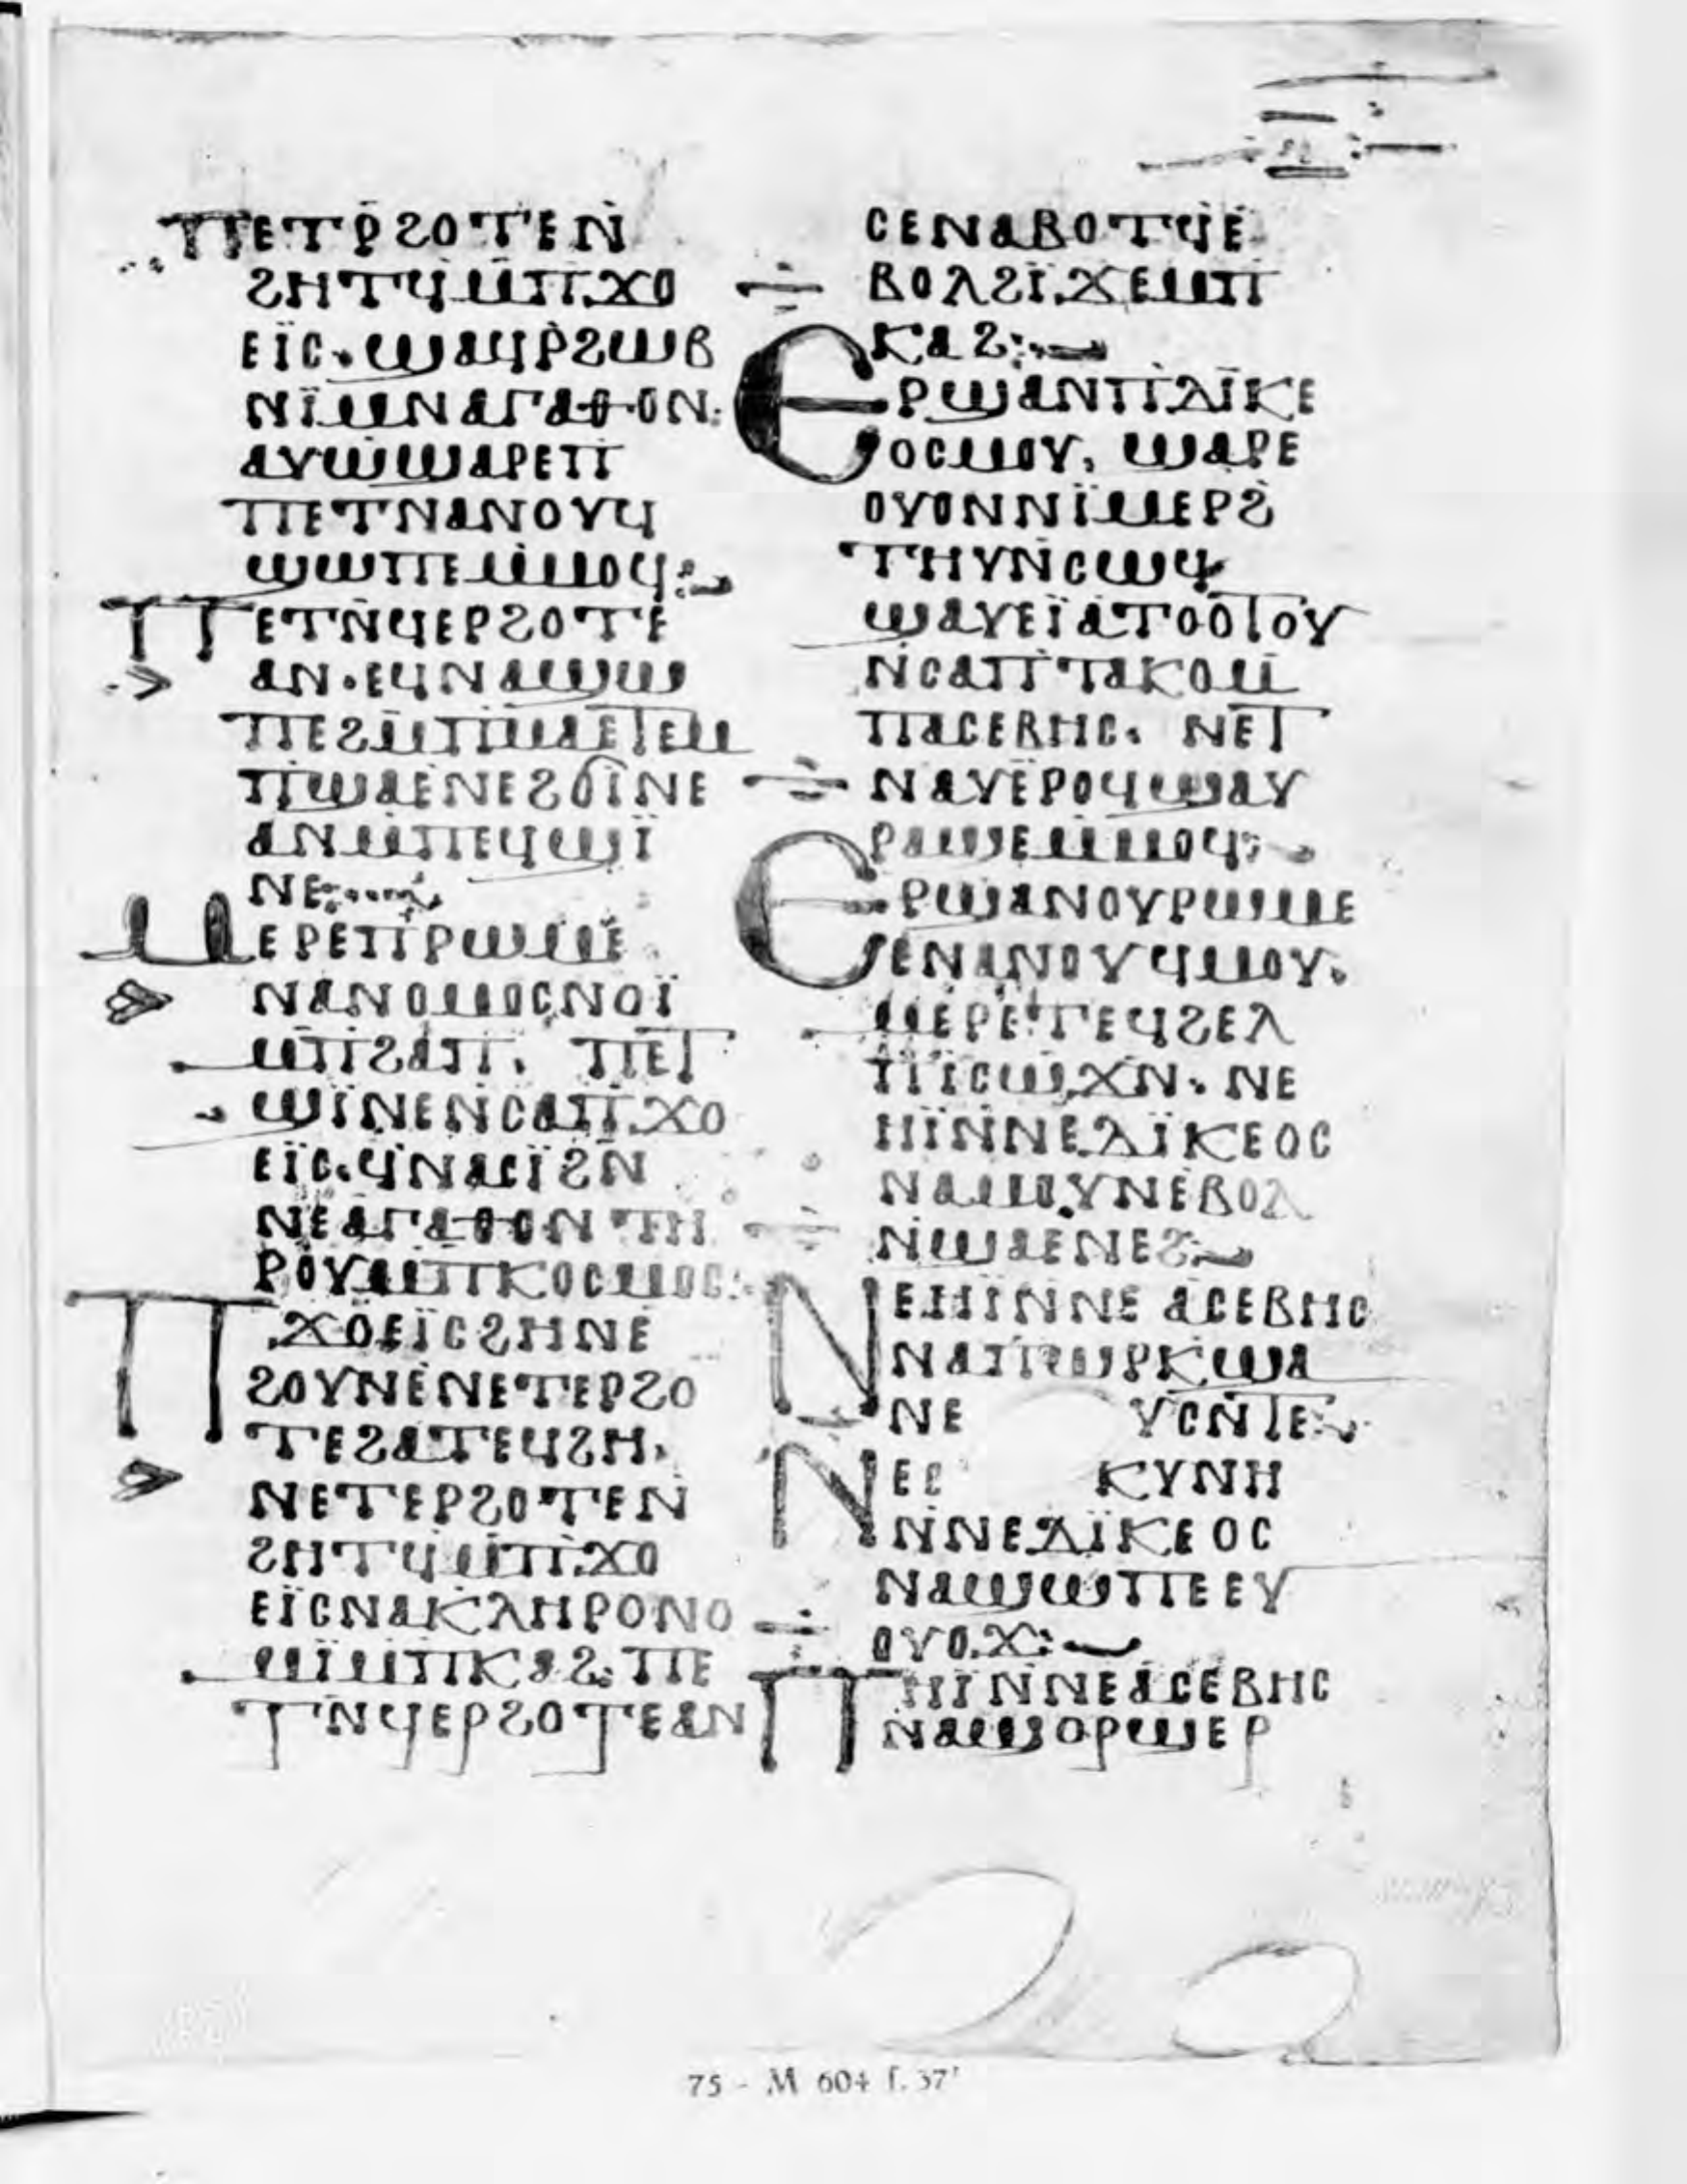 ⲡⲉⲧⲣ̄ϩⲟⲧⲉⲛ̇
ϩⲏⲧϥ̇ⲙ̇ⲡ̇ϫⲟ
ⲉⲓ̈ⲥ·ϣⲁϥⲣ̇ϩⲱⲃ
ⲛⲓ̈ⲙⲛⲁⲅⲁⲑⲟⲛ·
ⲁⲩⲱϣⲁⲣⲉⲡ
ⲡⲉⲧⲛⲁⲛⲟⲩϥ
ϣⲱⲡⲉⲙ̇ⲙⲟϥ:
ⲡⲉⲧⲛ̇ϥⲉⲣϩⲟⲧⲉ
ⲁⲛ·ⲉϥⲛⲁϣⲱ
ⲡⲉϩⲙ̇ⲡⲙⲁⲉⲧⲉⲙ
ⲡϣⲁⲉⲛⲉϩϭⲓ̈ⲛⲉ
ⲁⲛⲙ̇ⲡⲉϥϣⲓ̈
ⲛⲉ:
ⲙⲉⲣⲉⲡⲣⲱⲙⲉ
ⲛⲁⲛⲟⲙⲟⲥⲛⲟⲓ̈
ⲙ̇ⲡϩⲁⲡ· ⲡⲉⲧ
ϣⲓ̈ⲛⲉⲛ̇ⲥⲁⲡ̇ϫⲟ
ⲉⲓ̈ⲥ·ϥ̇ⲛⲁⲥⲓ̈ϩⲛ̄
ⲛⲉⲁⲅⲁⲑⲟⲛ ⲧⲏ
ⲣⲟⲩⲙ̇ⲡⲕⲟⲥⲙⲟⲥ:
ⲡϫⲟⲉⲓ̈ⲥϩⲏⲛⲉ
ϩⲟⲩⲛⲉⲛⲉⲧⲉⲣϩⲟ
ⲧⲉϩⲁⲧⲉϥϩⲏ·
ⲛⲉⲧⲉⲣϩⲟⲧⲉⲛ̇
ϩⲏⲧϥ̇ⲙ̇ⲡ̇ϫⲟ
ⲉⲓ̈ⲥⲛⲁⲕⲗⲏⲣⲟⲛⲟ
ⲙⲓ̈ⲙ̇ⲡⲕⲁϩ: ⲡⲉ
ⲧⲛ̇ϥⲉⲣϩⲟⲧⲉⲁⲛ
ⲥⲉⲛⲁⲃⲟⲧϥ̇ⲉ
ⲃⲟⲗϩⲓ̈ϫⲉⲙⲡ
ⲕⲁϩ:
ⲉⲣϣⲁⲛⲡⲇⲓ̈ⲕⲉ
ⲟⲥⲙⲟⲩ· ϣⲁⲣⲉ
ⲟⲩⲟⲛⲛⲓ̈ⲙⲉⲣϩ̇
ⲧⲏⲩⲛ̇ⲥⲱϥ
ϣⲁⲩⲉⲓ̈ⲁⲧⲟⲟⲧⲟⲩ
ⲛ̇ⲥⲁⲡⲧⲁⲕⲟⲙ̄
ⲡⲁⲥⲉⲃⲏⲥ· ⲛⲉⲧ
ⲛⲁⲩⲉⲣⲟϥϣⲁⲩ
ⲣⲁϣⲉⲙ̇ⲙⲟϥ:
ⲉⲣϣⲁⲛⲟⲩⲣⲱⲙⲉ
ⲉⲛⲁⲛⲟⲩϥⲙⲟⲩ·
ⲙⲉⲣⲉⲧⲉϥϩⲉⲗ
ⲡⲓ̈ⲥⲱϫⲛ· ⲛⲉ
ⲏⲓ̈ⲛ̇ⲛⲉⲇⲓ̈ⲕⲉⲟⲥ
ⲛⲁⲙⲟⲩⲛⲉⲃⲟⲗ
ⲛ̇ϣⲁⲉⲛⲉϩ:
ⲛⲉⲏⲓ̈ⲛ̇ⲛⲉⲁⲥⲉⲃⲏⲥ
ⲛⲁⲡⲱⲣⲕϣⲁ
ⲛⲉ ⲩⲥⲛ̇ⲧⲉ:
ⲛⲉⲥ ⲕⲩⲛⲏ
ⲛ̇ⲛⲉⲇⲓ̈ⲕⲉⲟⲥ
ⲛⲁϣⲱⲡⲉⲉⲩ
ⲟⲩⲟϫ:
ⲡⲏⲓ̈ⲛ̇ⲛⲉⲁⲥⲉⲃⲏⲥ
ⲛⲁϣⲟⲣϣⲉⲣ
75 - M 604 f. 37